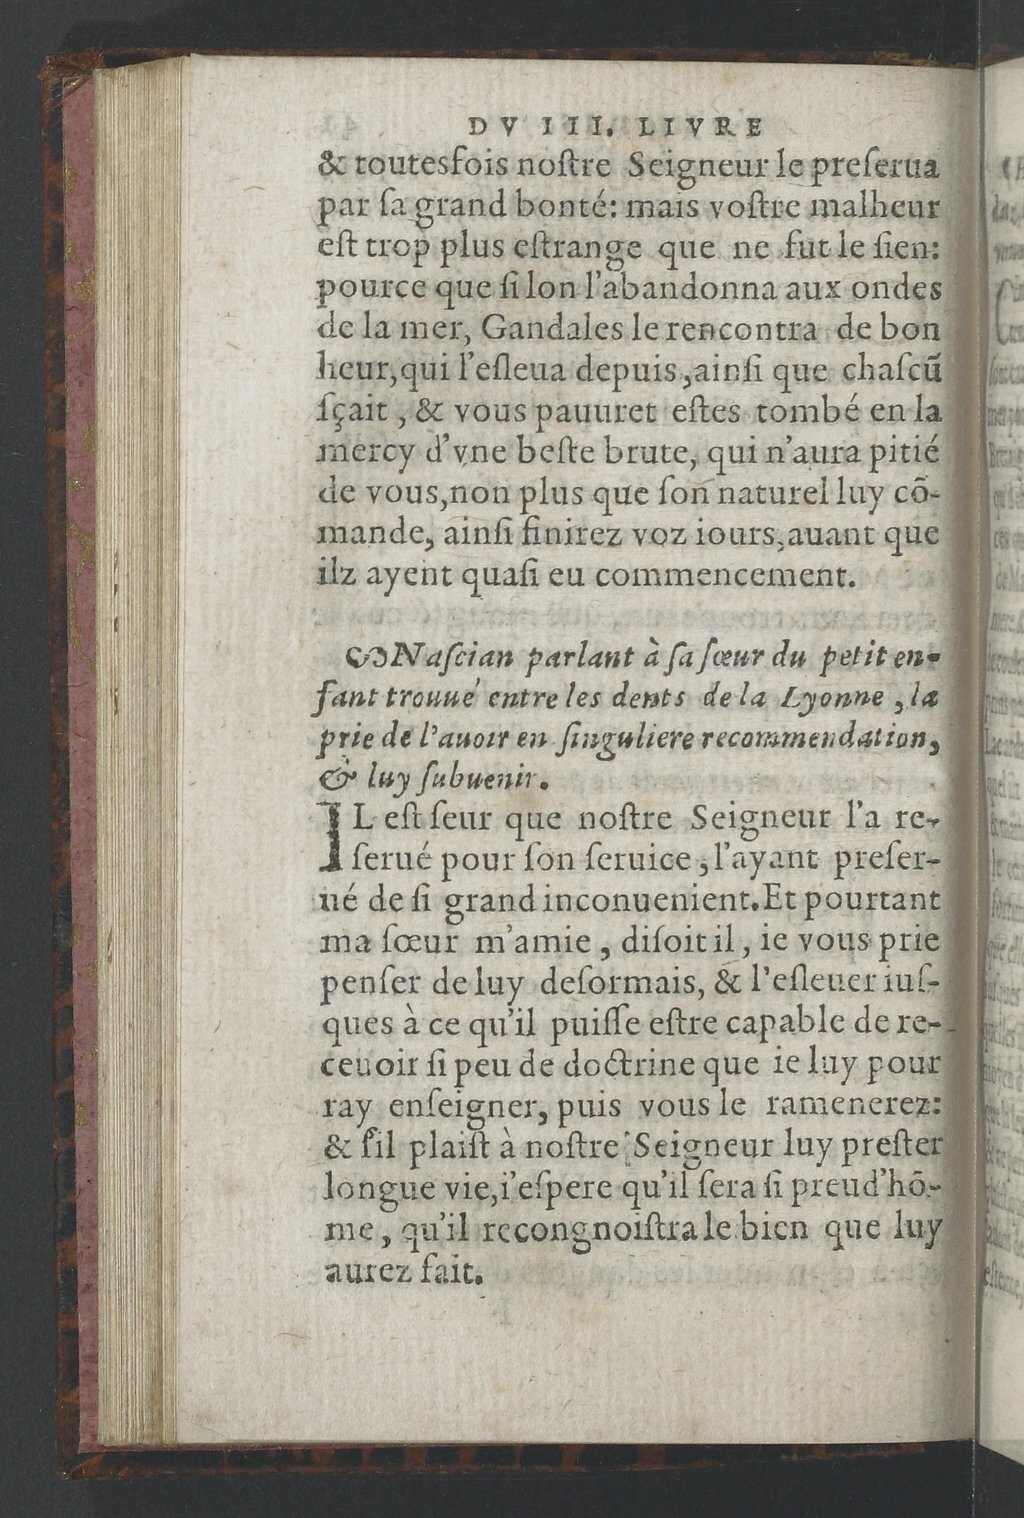 DV III. LIVRE
& toutesfois noſtre Seigneur le preſerua
par ſa grand bonté: mais voſtre malheur
eſt trop plus eſtrange que ne fut le ſien:
pource que ſi lon l'abandonna aux ondes
de la mer, Gandales le rencontra de bon
heur, qui l'eſleua depuis, ainſi que chaſcũ
ſçait, & vous pauuret eſtes tombé en la
mercy d'vne beſte brute, qui n'aura pitié
de vous, non plus que ſon naturel luy cõ-
mande, ainſi finirez voz iours, auant que
ilz ayent quaſi eu commencement.
Naſcian parlant à ſa ſœur du petit en-
fant trouué entre les dents de la Lyonne, la
prie de l'auoir en ſinguliere recommendation,
& luy ſubuenir.
IL eſt ſeur que noſtre Seigneur l'a re-
ſerué pour ſon ſeruice, l'ayant preſer-
ué de ſi grand inconuenient. Et pourtant
ma ſœur m'amie, diſoit il, ie vous prie
penſer de luy deſormais, & l'eſleuer iuſ-
ques à ce qu'il puiſſe eſtre capable de re-
ceuoir ſi peu de doctrine que ie luy pour
ray enſeigner, puis vous le ramenerez:
& ſ'il plaiſt à noſtre Seigneur luy preſter
longue vie, i'eſpere qu'il ſera ſi preud'hõ-
me, qu'il recongnoiſtra le bien que luy
aurez fait.